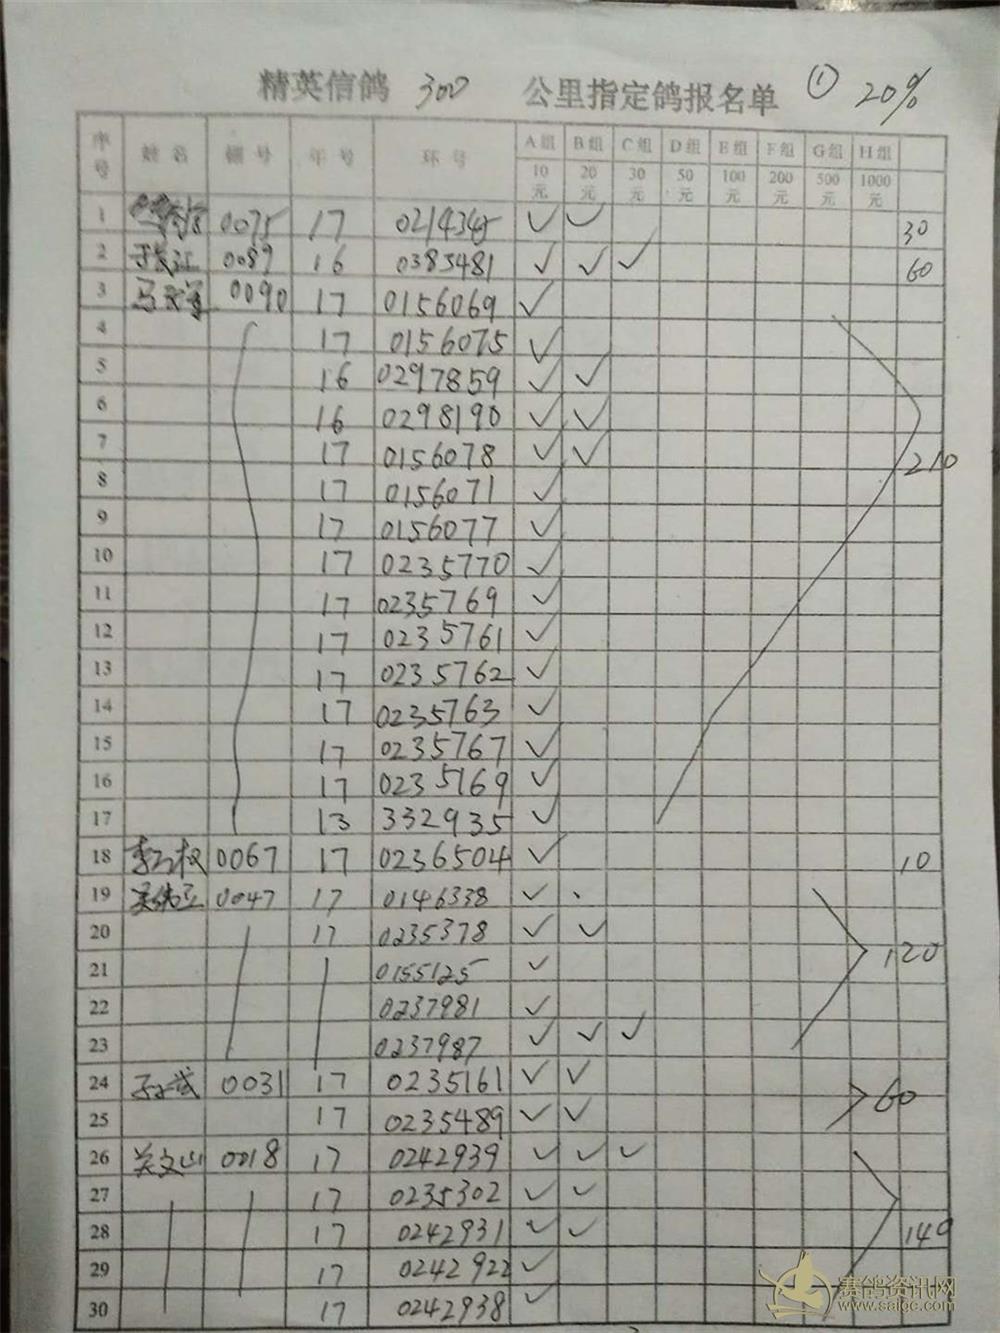 精英信鸽 300 公里指定鸽报名单 ① 20%
序号 姓名 棚号 年号 环号 A组 B组 C组 D组 E组 F组 G组 H组
10元 20元 30元 50元 100元 200元 500元 1000元
1 0075 17 0214345 ✓ ✓ 30
2 0089 16 0385481 ✓ ✓ ✓ 60
3 0090 17 0156069 ✓
4 17 0156075 ✓
5 16 0297859 ✓ ✓
6 16 0298190 ✓ ✓
7 17 0156078 ✓ ✓ 210
8 17 0156071 ✓
9 17 0156077 ✓
10 17 0235770 ✓
11 17 0235769 ✓
12 17 0235761 ✓
13 17 0235762 ✓
14 17 0235763 ✓
15 17 0235767 ✓
16 17 0235169 ✓
17 13 332935 ✓
18 0067 17 0236504 ✓ 10
19 0047 17 0146338 ✓
20 17 0235378 ✓ ✓ 120
21 0155125 ✓
22 0237981 ✓
23 0237987 ✓ ✓ ✓
24 0031 17 0235161 ✓ ✓ 60
25 17 0235489 ✓ ✓
26 关文山 0018 17 0242939 ✓ ✓ ✓
27 17 0235302 ✓ ✓
28 17 0242931 ✓ ✓ 140
29 17 0242922 ✓
30 17 0242938 ✓
赛鸽资讯网
www.saigc.com